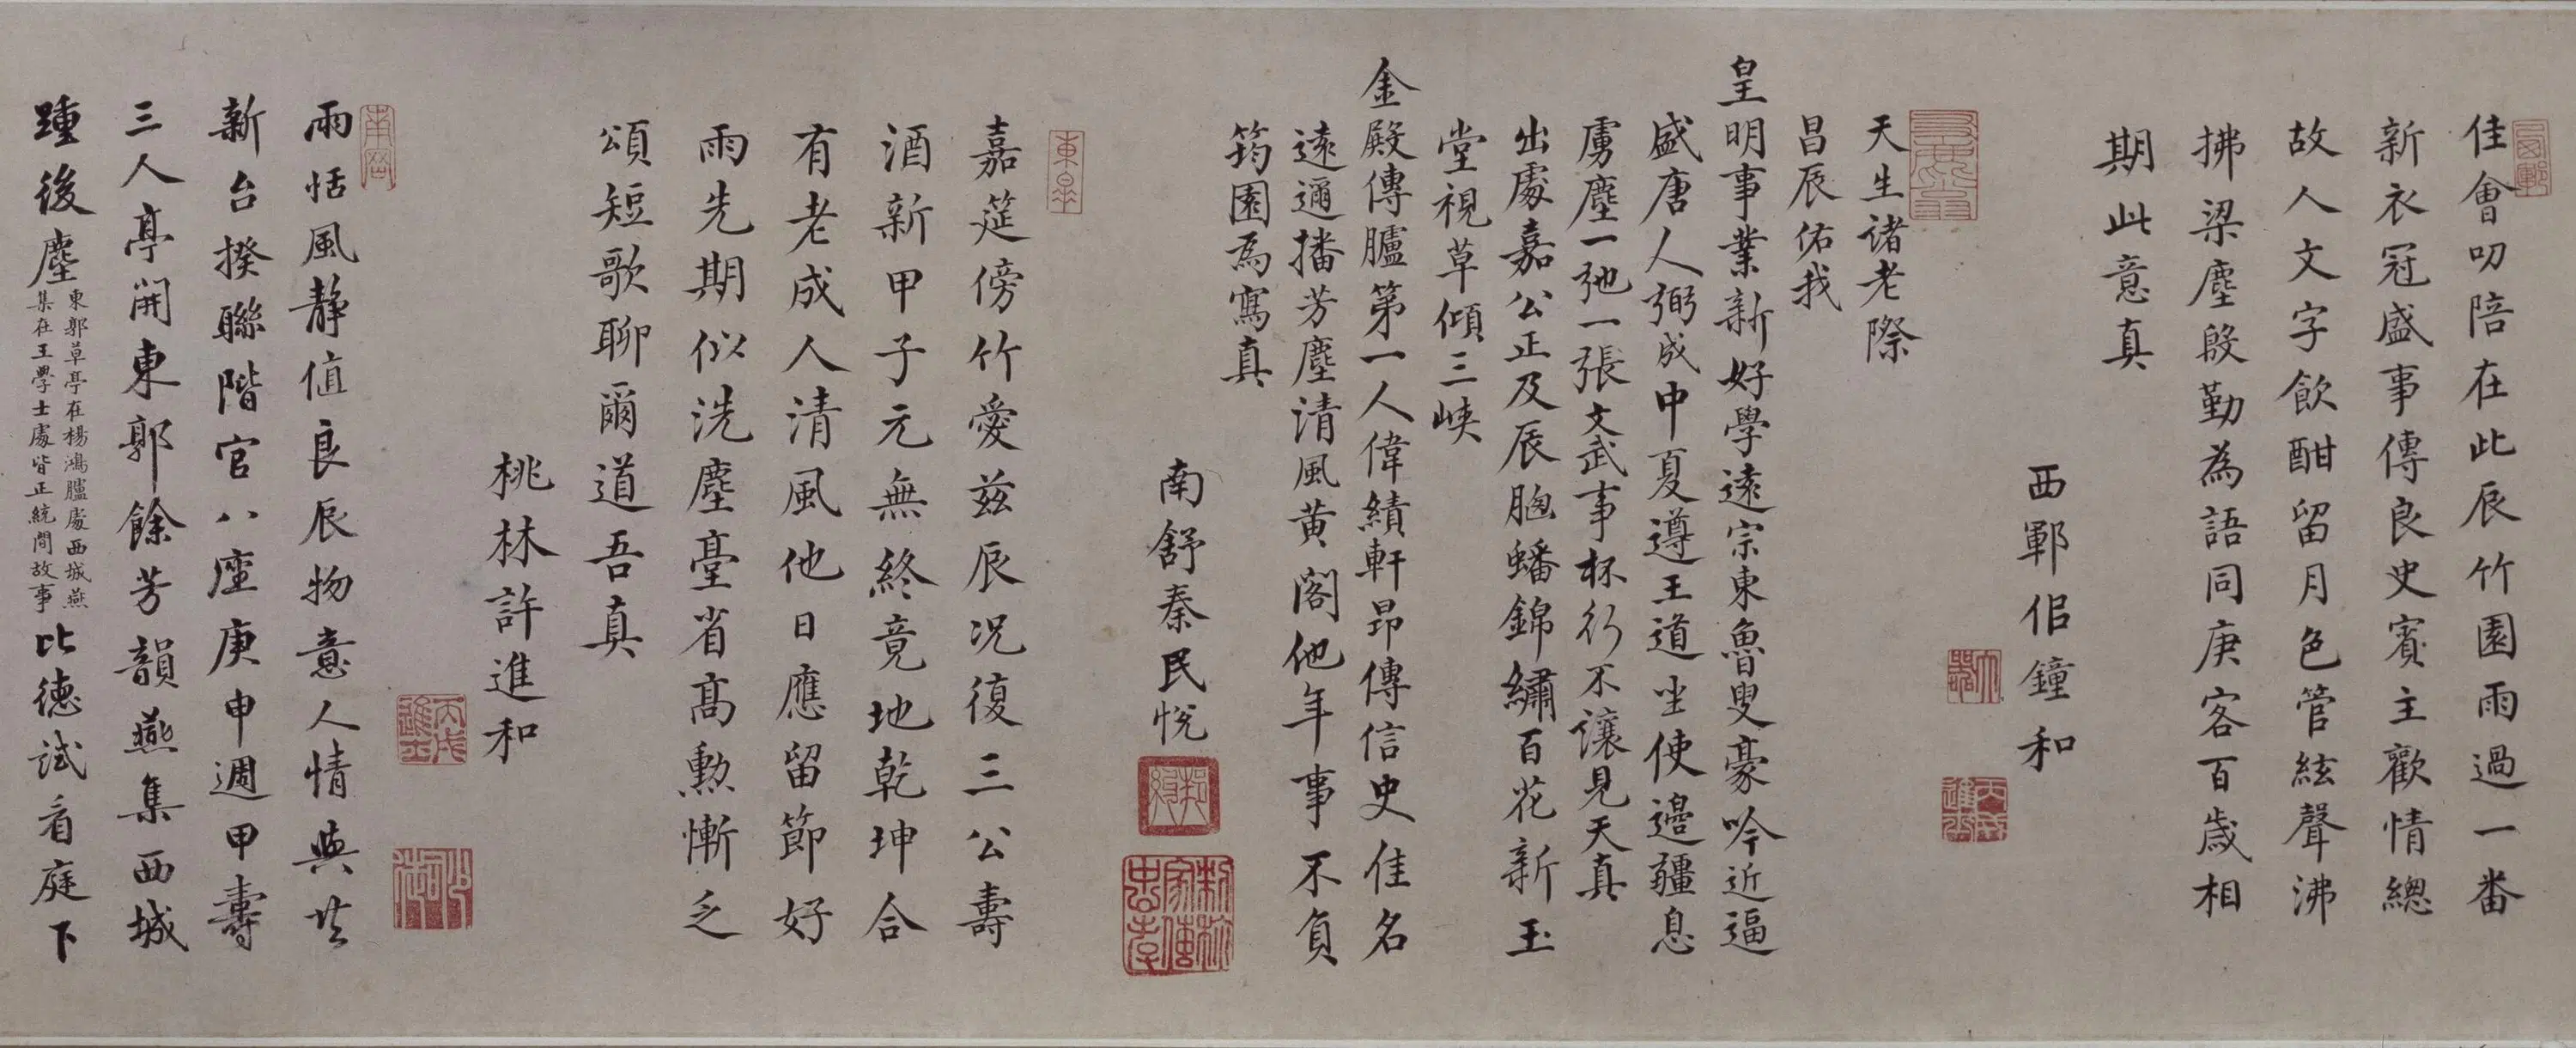 佳會叨陪在此辰竹園雨過一番
新衣冠盛事傳良史賓主歡情總
故人文字飲酣留月色管絃聲沸
拂梁塵殷勤為語同庚客百歲相
期此意真
西鄆佀鐘和
天生諸老際
昌辰佑我
皇明事業新好學遠宗東魯叟豪吟近逼
盛唐人弼成中夏遵王道坐使邊疆息
虜塵一弛一張文武事杯行不讓見天真
出處嘉公正及辰胸蟠錦繡百花新玉
堂視草傾三峽
金殿傳臚第一人偉績軒昂傳信史佳名
遠邇播芳塵清風黃閣他年事不負
筠園為寫真
南舒秦民悅
東皋
嘉筵傍竹愛茲辰况復三公壽
酒新甲子元無終竟地乾坤合
有老成人清風他日應留節好
雨先期似洗塵臺省高勲慚乏
頌短歌聊爾道吾真
桃林許進和
丙戌進士
雨恬風靜值良辰物意人情與共
新台揆聯階官八座庚申週甲壽
三人亭開東郭餘芳韻燕集西城
踵後塵東郭草亭在楊鴻臚處西城燕
集在王學士處皆正統間故事比德試看庭下